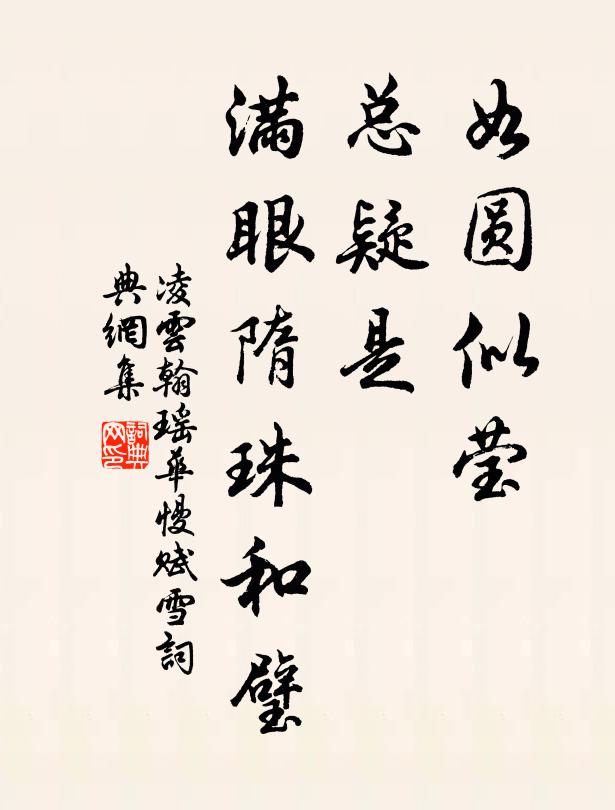 如圓似莹
总疑是
滿眼隋珠和璧
凌雲翰瑶華慢赋雪詞
典網集
詞典
网印